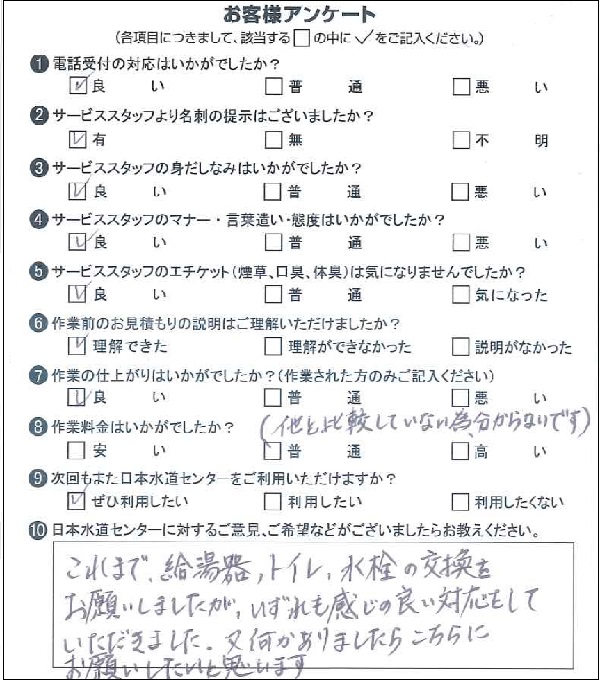 お客様アンケート
(各項目につきまして、該当する□の中に✓をご記入ください。)
❶ 電話受付の対応はいかがでしたか?
☑良い □普通 □悪い
❷ サービススタッフより名刺の提示はございましたか?
☑有 □無 □不明
❸ サービススタッフの身だしなみはいかがでしたか?
☑良い □普通 □悪い
❹ サービススタッフのマナー・言葉遣い・態度はいかがでしたか?
☑良い □普通 □悪い
❺ サービススタッフのエチケット(煙草、口臭、体臭)は気になりませんでしたか?
☑良い □普通 □気になった
❻ 作業前のお見積もりの説明はご理解いただけましたか?
☑理解できた □理解ができなかった □説明がなかった
❼ 作業の仕上がりはいかがでしたか?(作業された方のみご記入ください)
☑良い □普通 □悪い
❽ 作業料金はいかがでしたか? (他と比較していない為、分からないです)
□安い □普通 □高い
❾ 次回もまた日本水道センターをご利用いただけますか?
☑ぜひ利用したい □利用したい □利用したくない
❿ 日本水道センターに対するご意見、ご希望などがございましたらお教えください。
これまで、給湯器,トイレ,水栓の交換を
お願いしましたが,いずれも感じの良い対応をして
いただきました.又何かありましたらこちらに
お願いしたいと思います